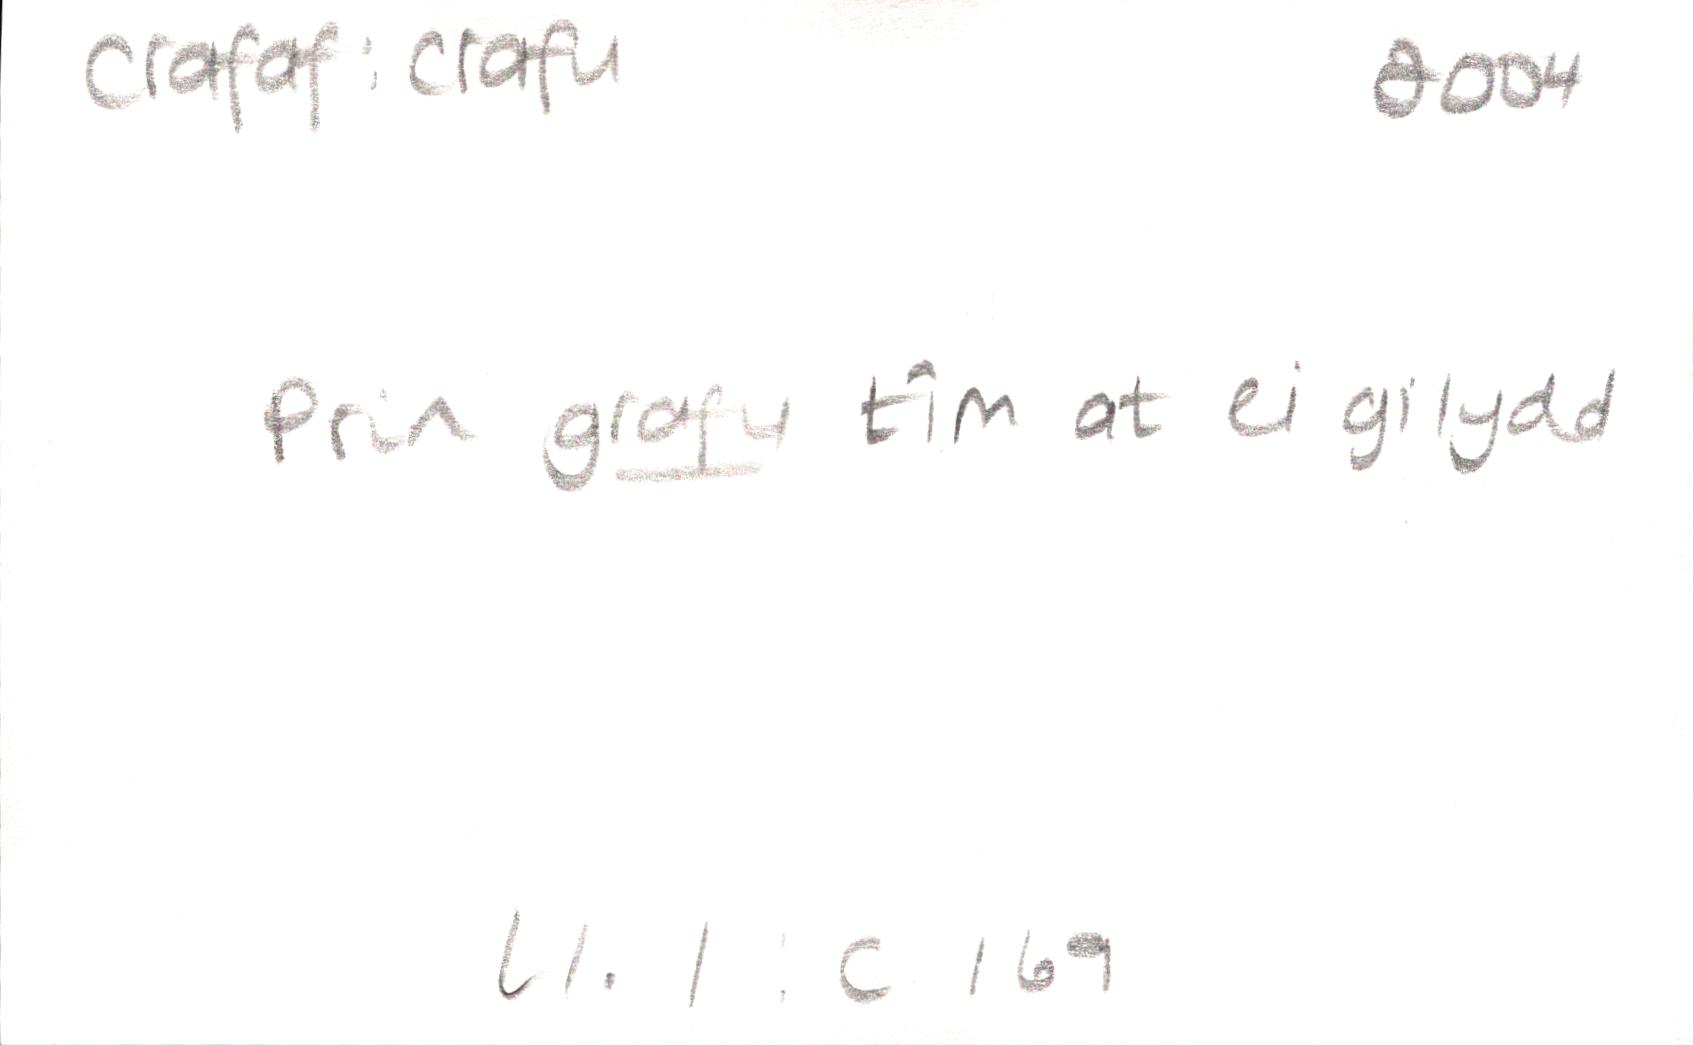 crafaf: crafu 2004
Prin grafu tîm at ei gilydd
Ll. 1 : C 169